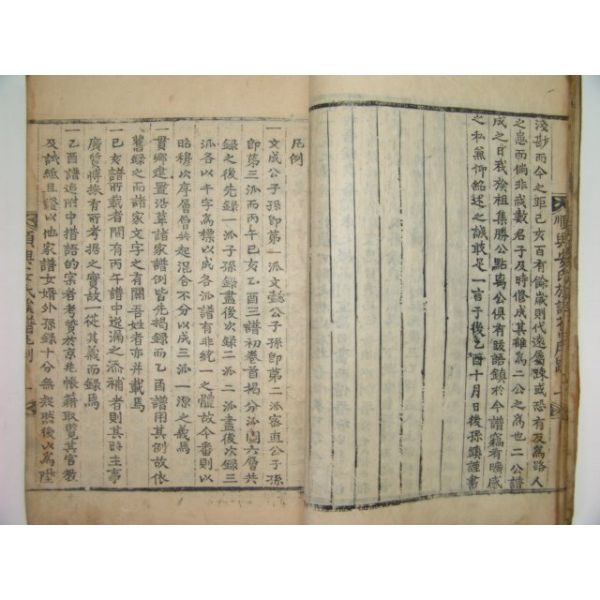 淺尠而今之距己亥百有餘歲則代遠屬踈或恐有反爲路人
之患而倘非戒數君子及時修成其難爲二公之爲也二公譜
成之日我於祖集勝公點爲公俱有跋語鎭於今譜竊有曠感
之私兼仰紹述之誠敢是一言于後乙酉十月日後孫鎭謹書
凡例
一文成公子孫即第一派文懿公子孫即第二派密直公子孫
即第三派而丙午己亥乙酉三譜初卷首揭分派圖六層共
錄之後先錄一派子孫錄畫後次錄二派二派畫後次錄三
派各以千字爲標以成各派譜有非統一之體故今番則以
昭穆次序層層共起混合不分以成三派一源之義焉
一貫鄕建置沿革諸家譜例皆先揭錄而乙酉譜用其例故依
舊錄之而諸家文字之有關吾姓者亦幷載焉
一己亥譜所載者間有丙午譜中遺漏之添補者則其時主事
廣詢博採有所考据之實故一從其義而錄焉
一乙酉譜追附中措語的寀者考贊於京兆帳籍取覽其官教
及誠組且證以他家譜女婿外孫錄十分無起然後以爲陞